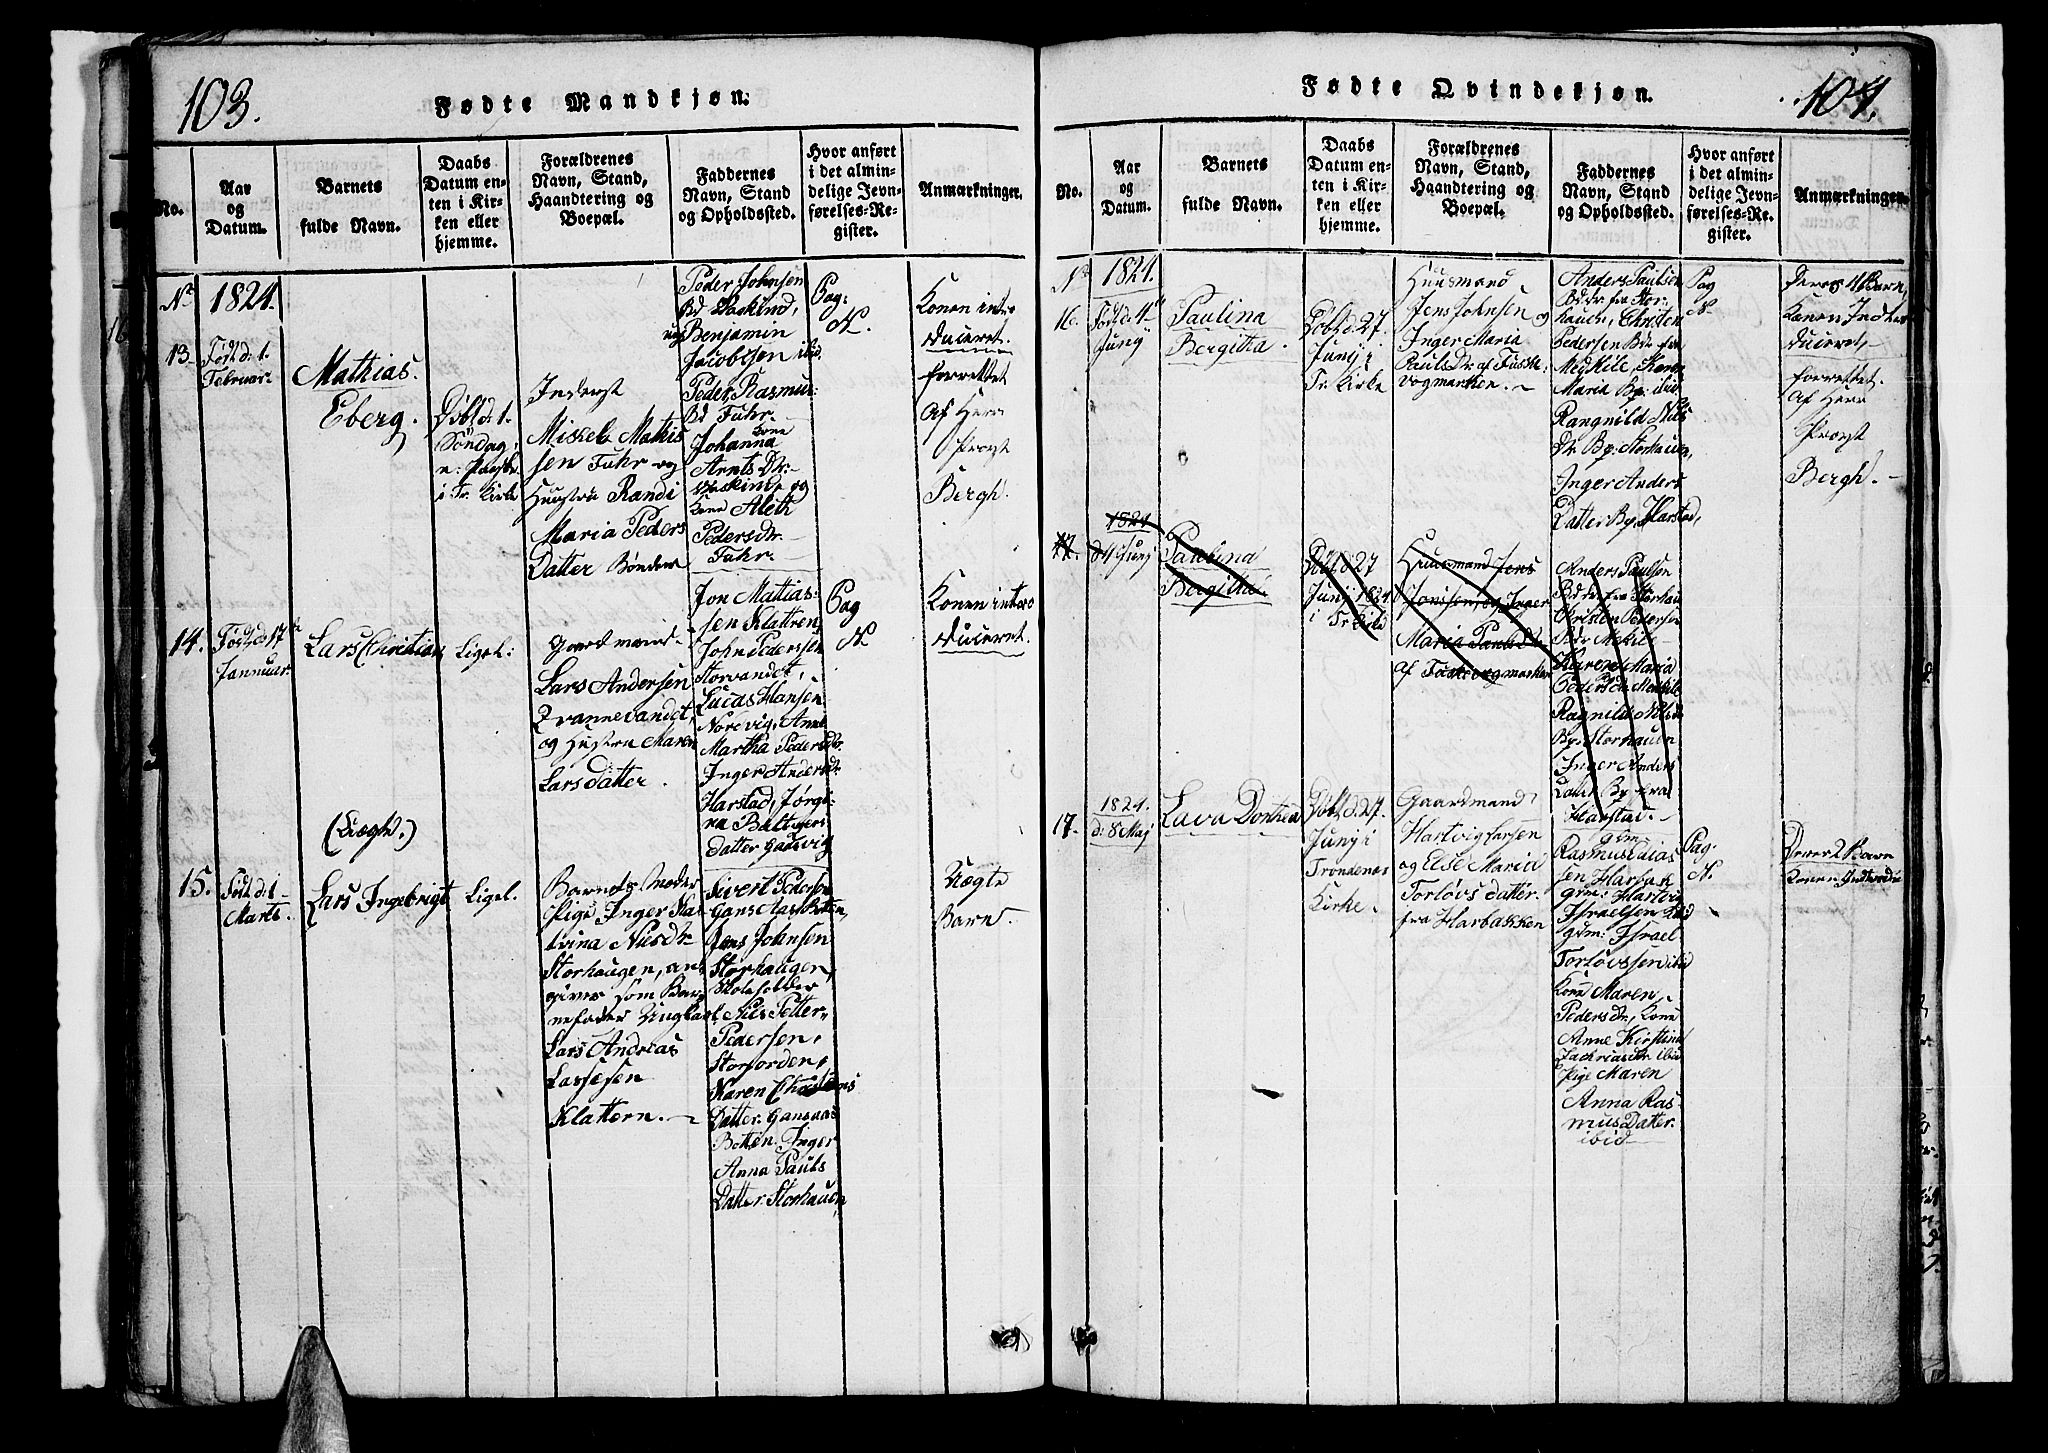 103.
Fødte Mandkjøn.
No.
Aar
og
Datum.
Barnets
fulde Navn.
Daabs
Datum en-
ten i Kir-
ken eller
hjemme.
Forældrenes
Navn, Stand,
Haandtering og
Boepæl.
Faddernes
Navn, Stand
og Opholdssted.
Hvor anført
i det almin-
delige Jevn-
førelses-Re-
gister.
Anmærkninger.
No
1824.
13
Født d: 1.
Februar.
Mathias.
Eberg.
Døbt d: 1.
Søndag
i Tr. Kirke
Inderst
Missel Mathis
sen Fuhr og
Hustru Randi
Maria Peders
Datter
Peder Johnsen
Benjamin
Jacobssen ibid
Peder Rasmus:
Fuhr.
Johanna
Arnts Dr:
og
Kone Aleth
Pedersdr.
Fuhr.
Pag:
N.
Konen intro
duceret.
forrettet
Af Herr
Provst
Bergh.
14.
Født d: 17
Januar.
Lars Christian
Ligel:
Gaardmand
Lars Andersen
Zvannevandet,
og Hustru Maren
Lars datter.
Jon Mathias:
sen Klattren,
John Pedersen
Storvandet,
Lucas Hansen
Norevig, Anne
Martha Pedersdr.
Inger Andersdr
Harstad, Jørgi:
na Baltzers
datter Gansvig
Pag
N.
Konen intro
duceret.
(Uægte.)
15.
Født d: 1
Marts.
Lars Ingebrigt
Ligel.
Barnets Moder
Pige Inger Ka
trina Nilsdr
Storhaugen, an
giver som Bar
nefader Ungkarl
Lars Andreas
Lassesen
Klattern.
Sivert Pedersen
Gansaas Botten,
Jens Johnsen
Storhaugen,
Skoleholder
Nils Petter
Pedersen,
Storjorden,
Karen Christens
Datter Gansaas
Botten. Inger
Anna Pauls
Datter: Storhauen
Uægte
Barn.
104.
Fødte Qvindekjøn.
No.
Aar
og
Datum.
Barnets
fulde Navn.
Daabs
Datum en-
ten i Kir-
ken eller
hjemme.
Forældrenes
Navn, Stand,
Haandtering og
Boepæl.
Faddernes
Navn, Stand
og Opholdssted.
Hvor anført
i det almin-
delige Jevn-
førelses-Re-
gister.
Anmærkninger.
No
1824.
16.
Født d: 4de
Junij
Paulina
Bergitha.
Døbt d: 27
Junij i
Tr. Kirke
Huusmand
Jens Johnsen og
Inger Maria
Pauls Dr. af Fuske
vogmarken.
Anders Paulsen
Bd. fra Stor:
hauen, Christen
Pedersen Bd. fra
Medkile, Karen
Maria Bp: ibid.
Rangnild Nils
Dr. Bp: Storhauen,
Inger Anders
Datter Bp. Harstad,
Pag
N.
Deres 4de Barn,
Konen Intro
duceret,
forrettet.
Af Herr
Provst
Bergh.
1824
17.
d 4 Junij
Paulina
Bergitha.
Døbt d: 27
Junij 1824
i Tr Kirke
Huusmand Jens
Jonsen, og Inger
Maria Paulsdr
af Fuskevogmarken
Anders Paulsen
Bd. fra Storhau
Christen Pedersen
Karen Maria
Pedersdr. Medkile
Ragnild Nilsdr
Bp. Storhauen
Inger Anders
Datter Bp fra
Harstad.
17.
1824.
d: 8 Maj
Lava Dorthea
Døbt d. 27.
Junij i
Trondenæs
Kirke.
Gaardmand
Hartvig Larsen
og Else Maria
Torløvs datter.
fra Harbakken
Gdm
Rasmus Edias
sen Harbak
gdm: Hartvig
Israelsen ibid
gdm: Israel
Torløvssen ibid
Kone Maren
Pedersdr., Kone
Anne Kirstina
Zachriasdr ibid
Pige Maren
Anna Ras-
mus Datter.
ibid
Pag.
N.
Deres 2 Barn
Konen Introd: